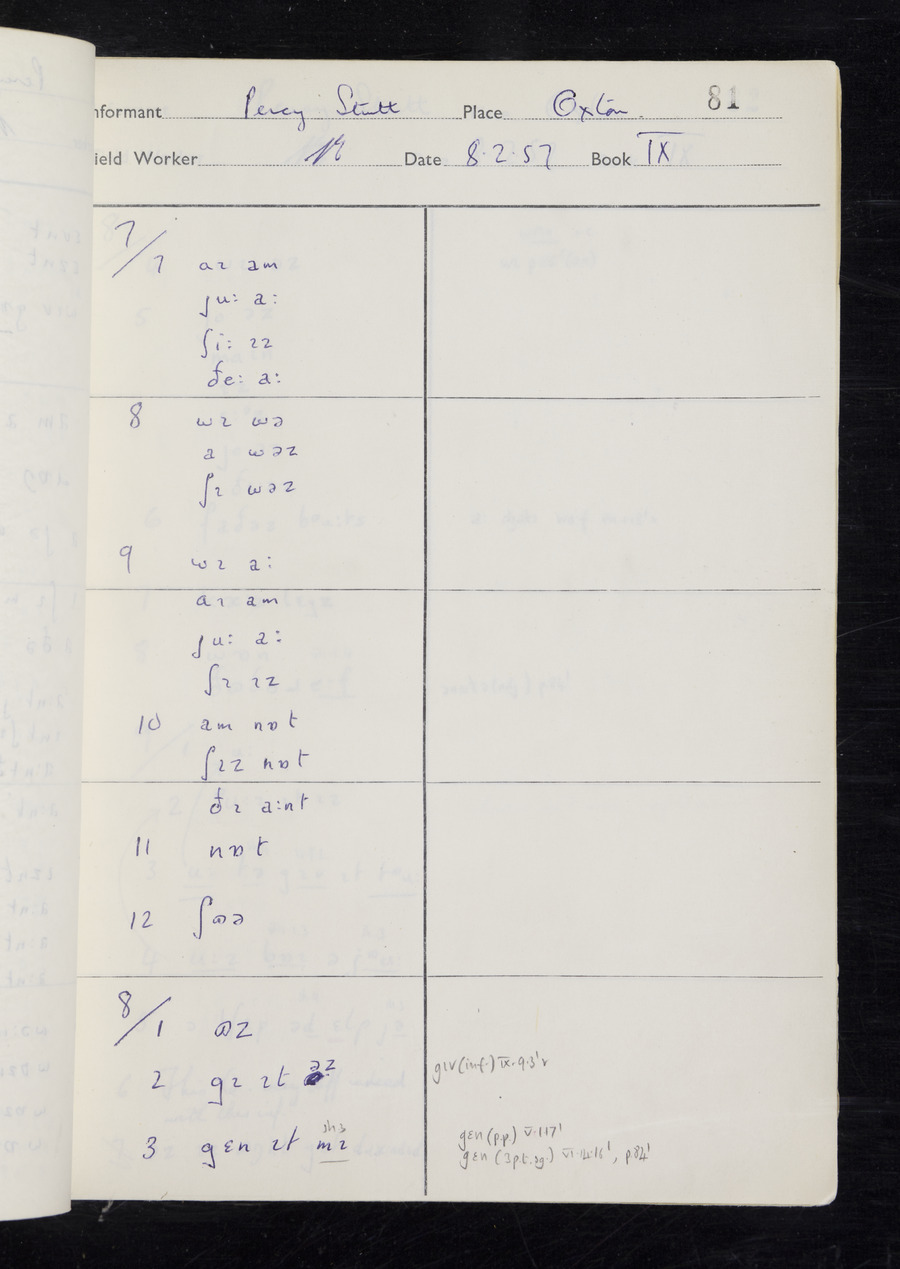 Informant Percy Stutt Place Oxton. 81
Field Worker Date 8.2.57 Book IX
7/7 aɪ am
ju: a:
ʃi: ɪz
ðe: a:
8 wɪ wə
a wəz
ʃɪ wəz
9 wɪ a:
aɪ am
ju: a:
ʃɪ ɪz
10 am nɒt
ʃɪz nɒt
ðɪ a:nt
11 nɒt
12 ʃɷə
8/1 ɷz
2 gɪ ɪt əz gɪv (imf.) IX.9.3'v
3 gɛn ɪt mɪ gɛn (p.p) V.117'
gɛn (3p.t.sg.) VI.14.16', p.84'